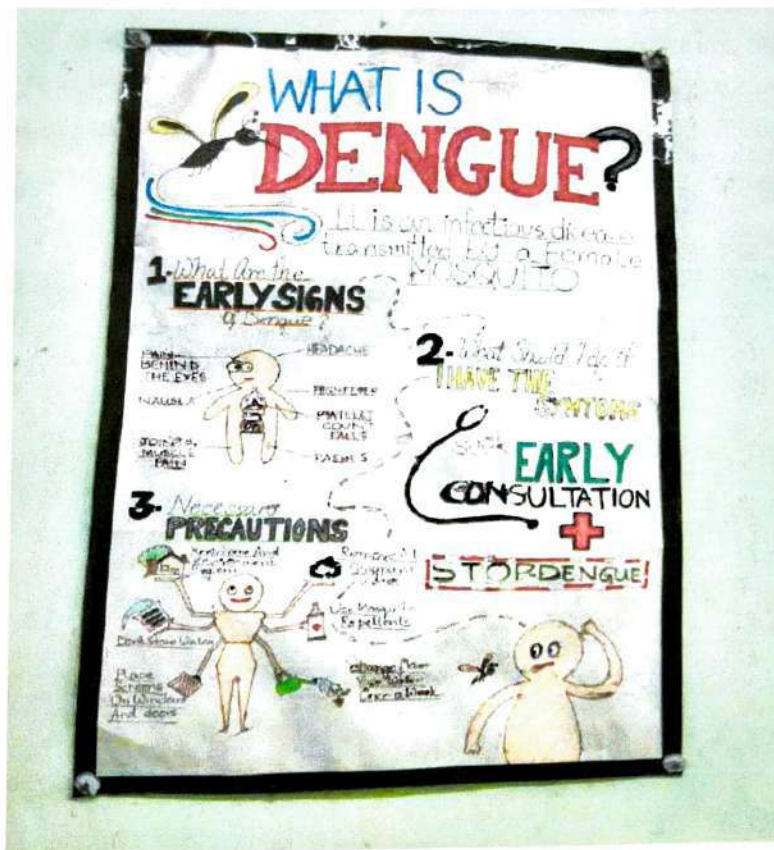 WHAT IS
DENGUE?
It is an infectious disease
transmitted by a Female
MOSQUITO
1. What Are the
EARLY SIGNS
of Dengue?
PAIN
BEHIND
THE EYES
HEADACHE
NAUSEA
HIGH FEVER
PLATELET
COUNT
FALLS
JOINT &
MUSCLE
PAIN
2. What Should I do if
I HAVE THE
SYMTOMS
Seek
EARLY
CONSULTATION
STOP DENGUE
3. Necessary
PRECAUTIONS
Keep Home And
Environment
Remove All
Use Mosquito
Repellents
Dont Store Water
Place
Screens
On Windows
And doors
Change
Water
Once a Week